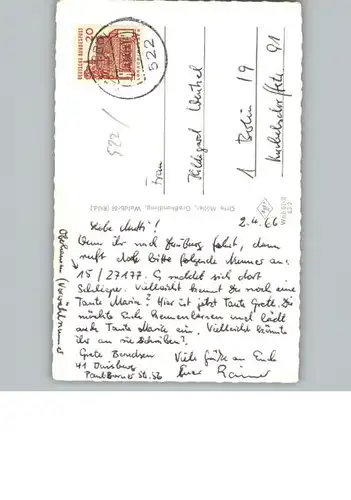 DEUTSCHE BUNDESPOST
20
522
522 /
Frau
Hildegard Wentzel
1 Berlin 19
91
Otto Müller, Großhandlung, Waldbröl (Rhld.)
2.4.66
Liebe Mutti!
Wenn ihr mit Duisburg fahrt, dann
ruft doch bitte folgende Nummer an:
15 / 27177. Es meldet sich dort
Schlieper. Vielleicht kennt Du noch eine
Tante Maria? Hier ist jetzt Tante Grete. Die
möchte Euch kennenlernen und lädt
auch Tante Marie ein. Vielleicht könnt
ihr an sie schreiben?
Grete Berndsen
41 Duisburg
Viele Grüße an Euch
Euer Rainer
Oberhausen (Vorwahlnummer